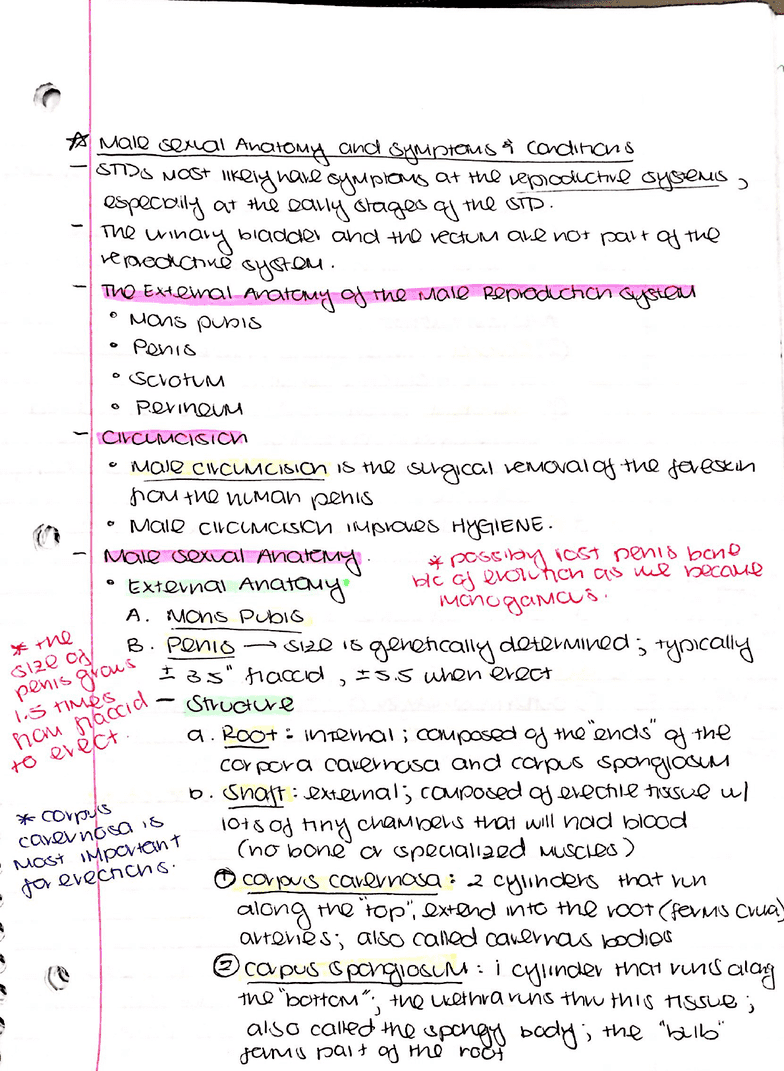 ☆ Male sexual Anatomy and symptoms & Conditions
- STDs most likely have symptoms at the reproductive systems,
especially at the early stages of the STD.
- The urinary bladder and the rectum are not part of the
reproductive system.
- The External Anatomy of the Male Reproduction System
• Mons pubis
• Penis
• Scrotum
• Perineum
- Circumcision
• Male circumcision is the surgical removal of the foreskin
from the human penis
• Male circumcision improves HYGIENE.
- Male sexual Anatomy.
* possibly lost penis bone
b/c of evolution as we became
monogamous.
• External Anatomy
A. Mons Pubis
B. Penis → size is genetically determined; typically
± 3.5" flaccid, ±5.5 when erect
* the
size of
penis grows
1.5 times
from flaccid
to erect.
- Structure
a. Root: internal; composed of the "ends" of the
corpora cavernosa and corpus spongiosum
b. Shaft: external; composed of erectile tissue w/
lots of tiny chambers that will hold blood
(no bone or specialized muscles)
* corpus
cavernosa is
most important
for erections.
① corpus cavernosa: 2 cylinders that run
along the "top", extend into the root (forms crua)
arteries; also called cavernous bodies
② corpus spongiosum: 1 cylinder that runs along
the "bottom"; the urethra runs thru this tissue;
also called the spongy body; the "bulb"
forms part of the root